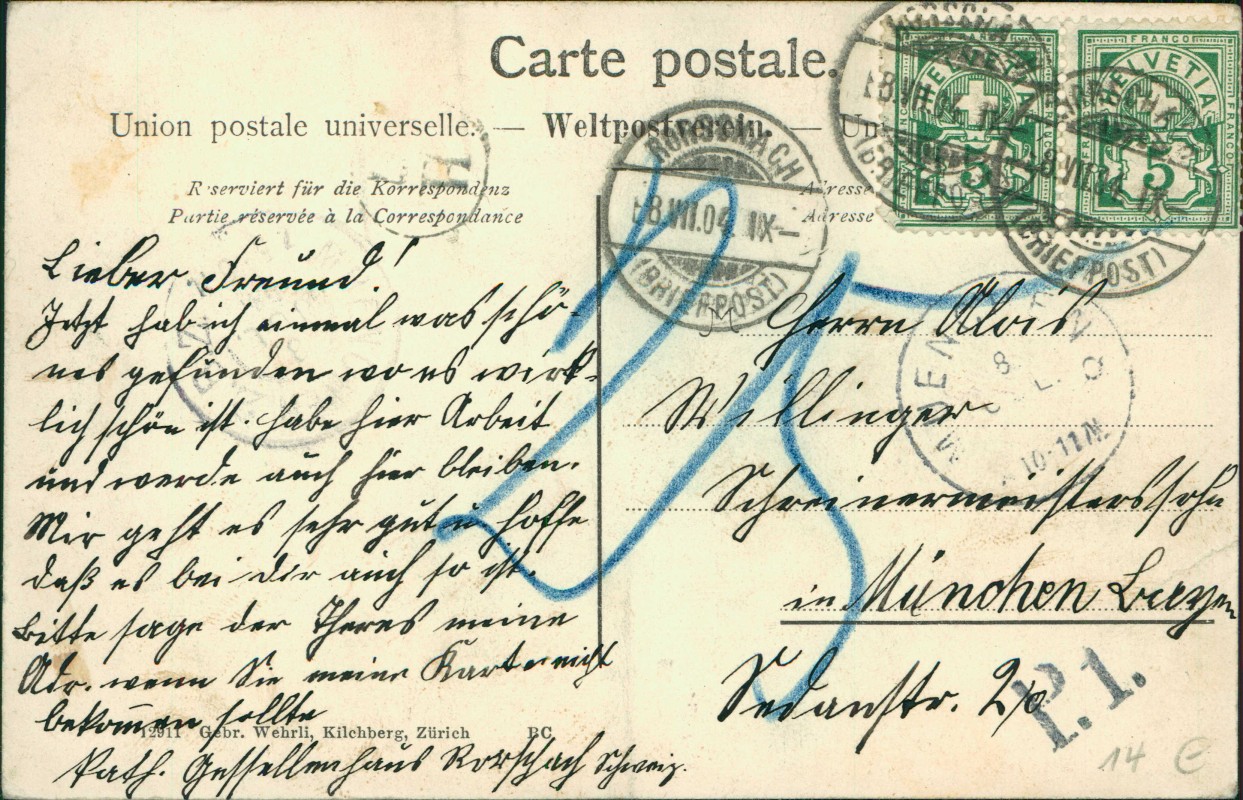 Carte postale.
Union postale universelle. — Weltpostverein. — Un
Reserviert für die Korrespondenz
Partie réservée à la Correspondance
Adresse
Adresse
FRANCO
HELVETIA
5
FRANCO
HELVETIA
5
RORSCHACH
8.VII.04 IX
(BRIEFPOST)
8.VII.04 IX
(BRIEFPOST)
MUENCHEN
8
10-11 N
Lieber Freund!
Jetzt hab ich einmal was schö-
nes gefunden wo es wirk-
lich schön ist. habe hier Arbeit
und werde auch hier bleiben.
Mir geht es sehr gut u hoffe
daß es bei dir auch so ist.
Bitte sage der Theres meine
Adr. wenn Sie meine Karte nicht
bekommen sollte
Kath. Gessellenhaus Rorschach Schweiz.
M Herrn Alois
Willinger
Schreinermeisterssohn
in München Bayern
Sedanstr. 2/0
25
P. 1.
14
12911 Gebr. Wehrli, Kilchberg, Zürich BC